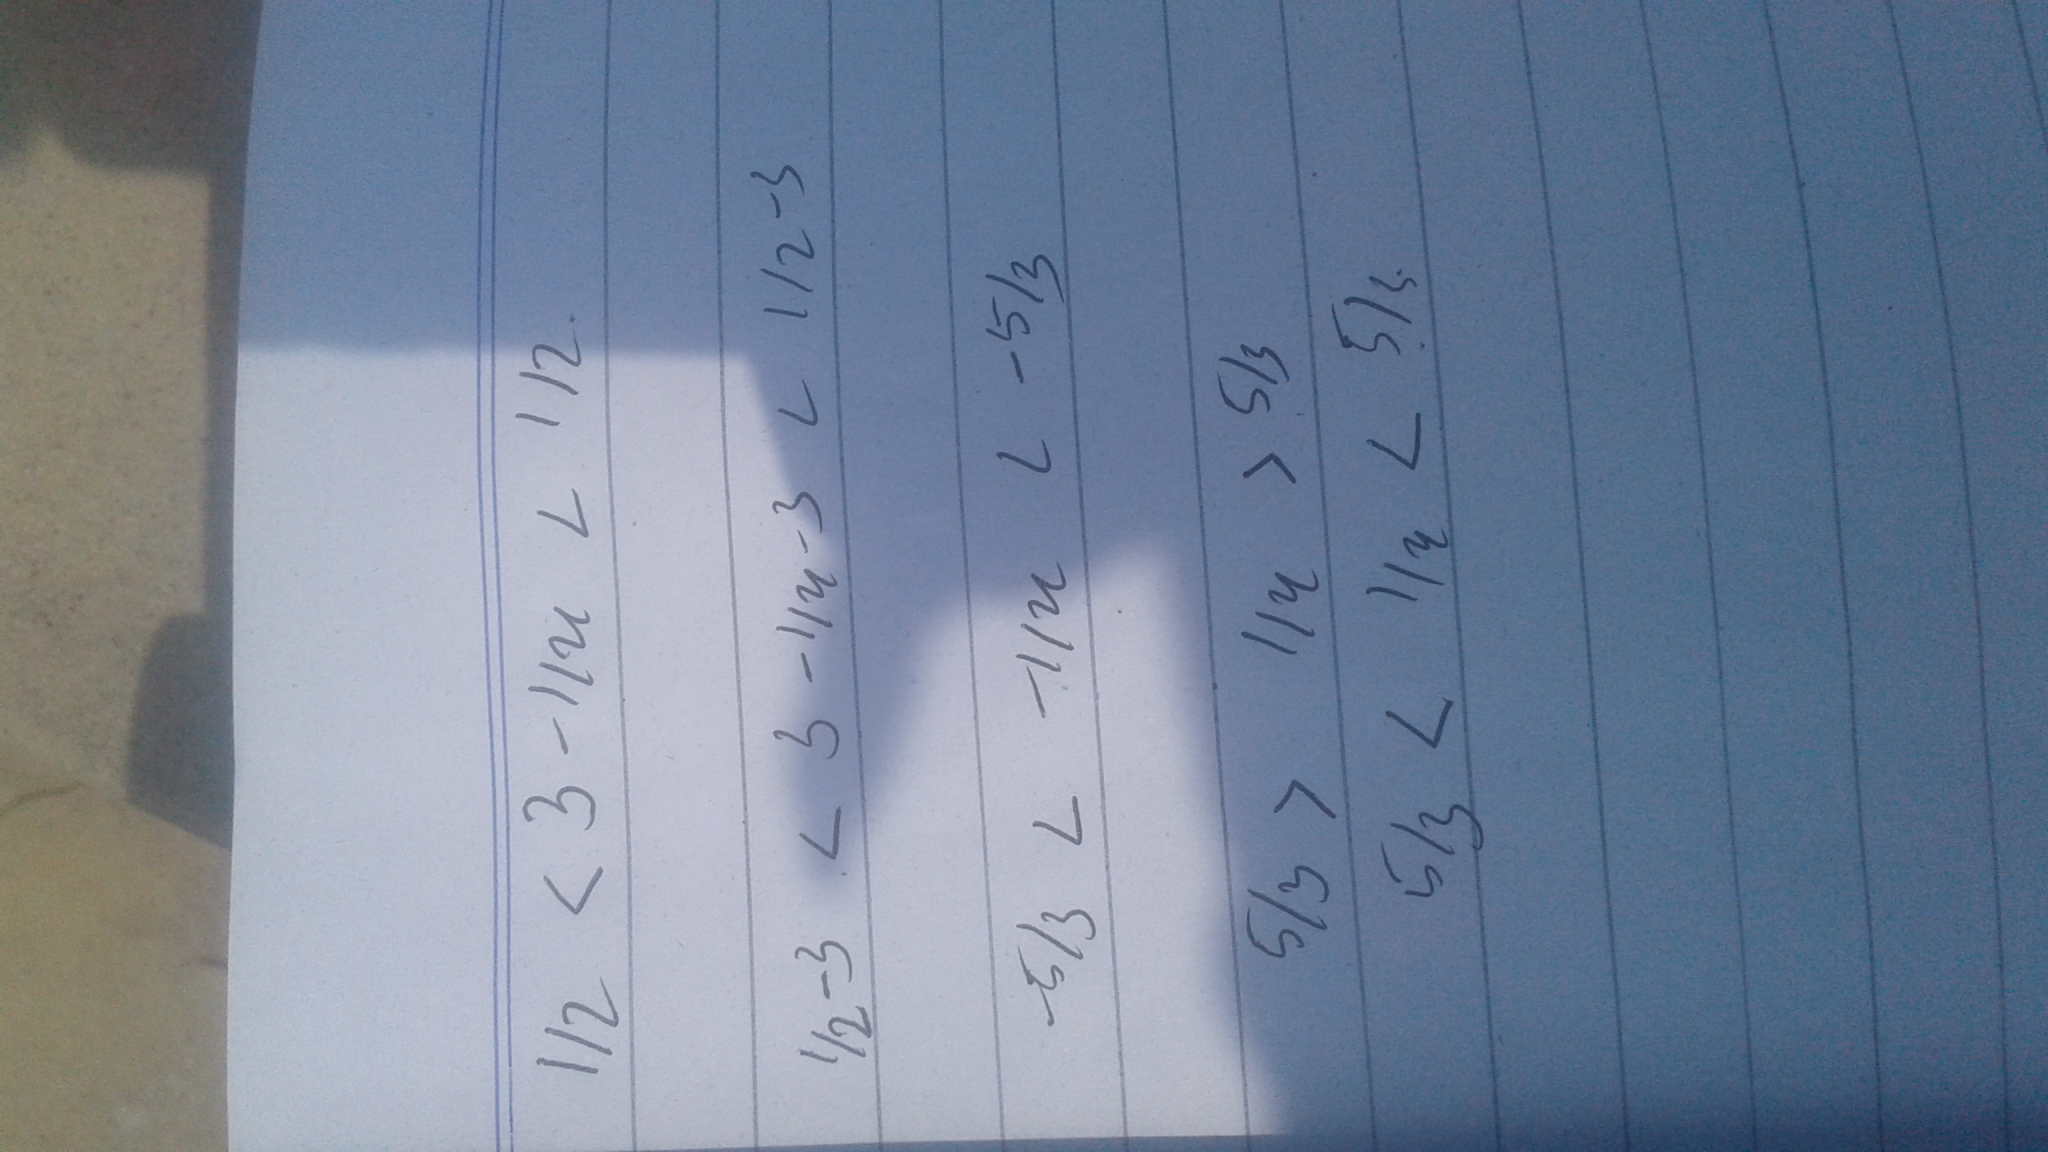 1/2 < 3 - 1/x < 1/2.
1/2 - 3 < 3 - 1/x - 3 < 1/2 - 3
-5/3 < -1/x < -5/3
5/3 > 1/x > 5/3
5/3 < 1/x < 5/3